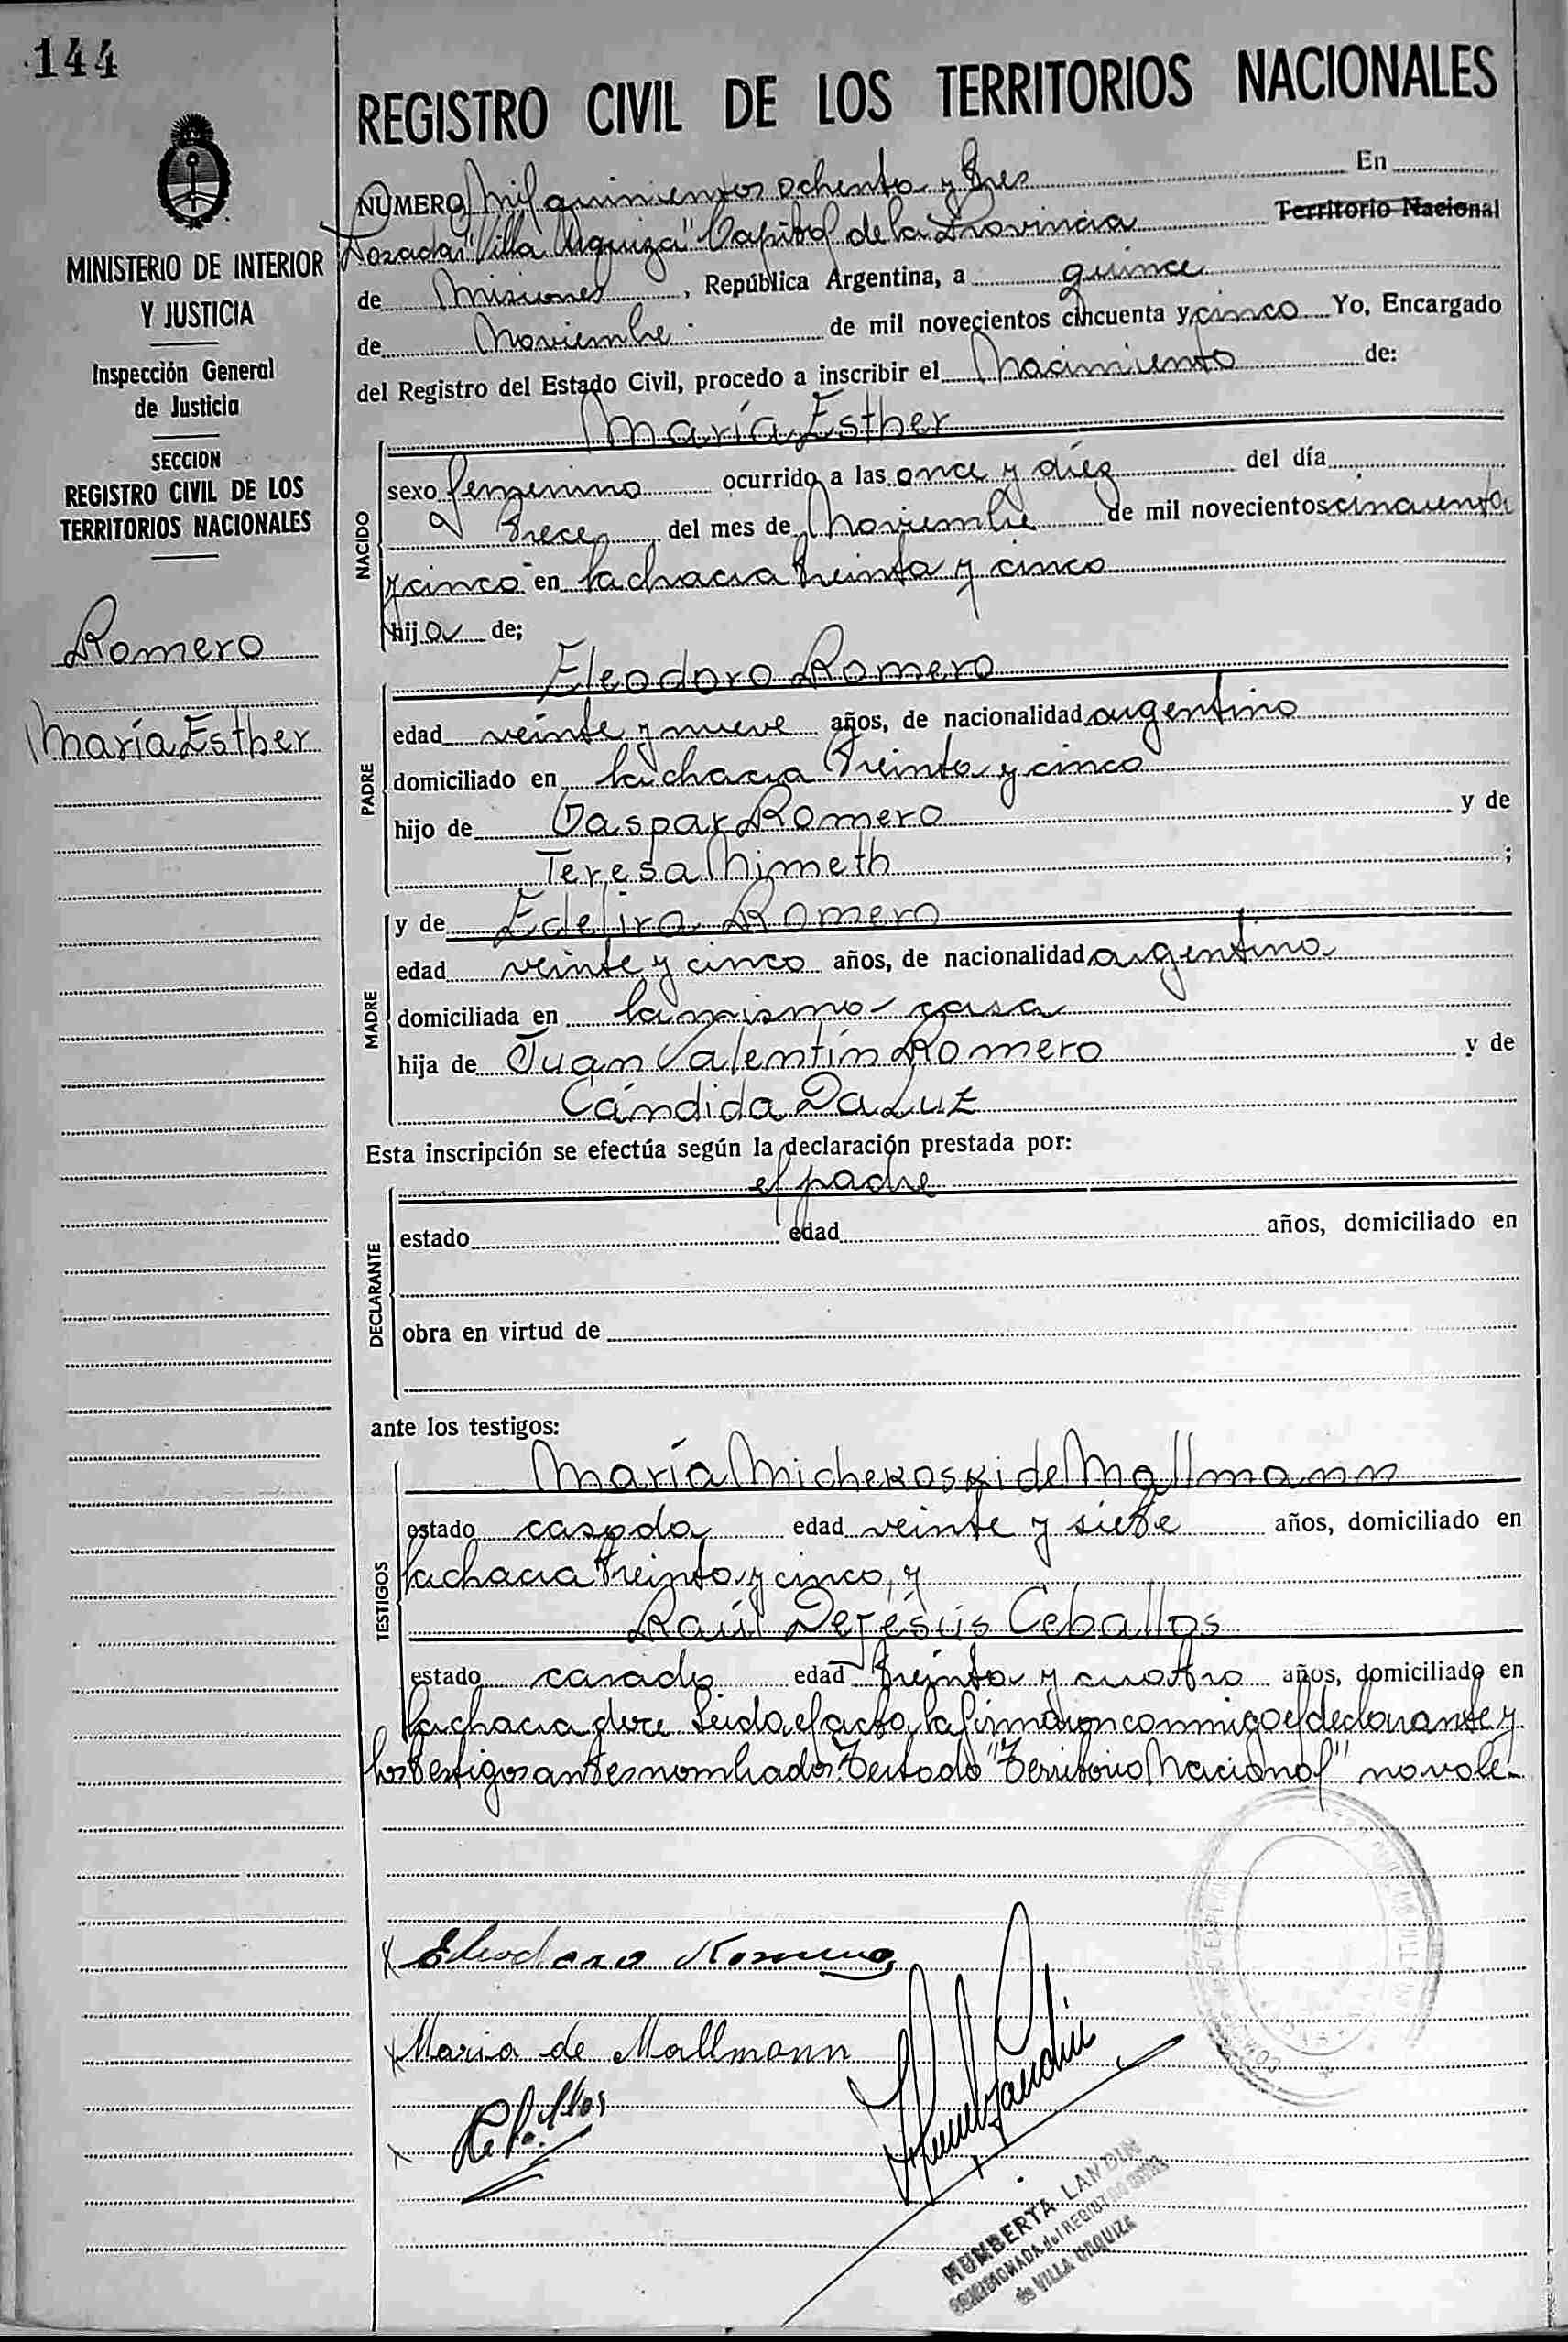 144
MINISTERIO DE INTERIOR
Y JUSTICIA
Inspección General
de Justicia
SECCION
REGISTRO CIVIL DE LOS
TERRITORIOS NACIONALES
Romero
María Esther
REGISTRO CIVIL DE LOS TERRITORIOS NACIONALES
NUMERO Mil quinientos ochenta y tres En
Posadas "Villa Urquiza" Capital de la Provincia Territorio Nacional
de Misiones, República Argentina, a quince
de Noviembre de mil novecientos cincuenta y cinco Yo, Encargado
del Registro del Estado Civil, procedo a inscribir el Nacimiento de:
María Esther
NACIDO
sexo femenino ocurrido a las once y diez del día
trece del mes de Noviembre de mil novecientos cincuenta
y cinco en la chacra treinta y cinco
hija de;
Eleodoro Romero
PADRE
edad veinte y nueve años, de nacionalidad argentino
domiciliado en la chacra treinta y cinco
hijo de Gaspar Romero y de
Teresa Nimeth ;
y de Edelira Romero
MADRE
edad veinte y cinco años, de nacionalidad argentina
domiciliada en la misma casa
hija de Juan Valentín Romero y de
Cándida Da Luz
Esta inscripción se efectúa según la declaración prestada por:
el padre
DECLARANTE
estado edad años, domiciliado en
obra en virtud de
ante los testigos:
María Michekoski de Mallmann
TESTIGOS
estado casada edad veinte y siete años, domiciliado en
la chacra treinta y cinco, y
Raúl De Jésús Ceballos
estado casado edad treinta y cuatro años, domiciliado en
la chacra doce Leida el acta, la firmaron conmigo el declarante y
los testigos antes nombrados. Testado "Territorio Nacional" no vale.
Eleodoro Romero
Maria de Mallmann
Ceballos
HUMBERTA LANDIN
COMISIONADA del REGISTRO CIVIL
de VILLA URQUIZA